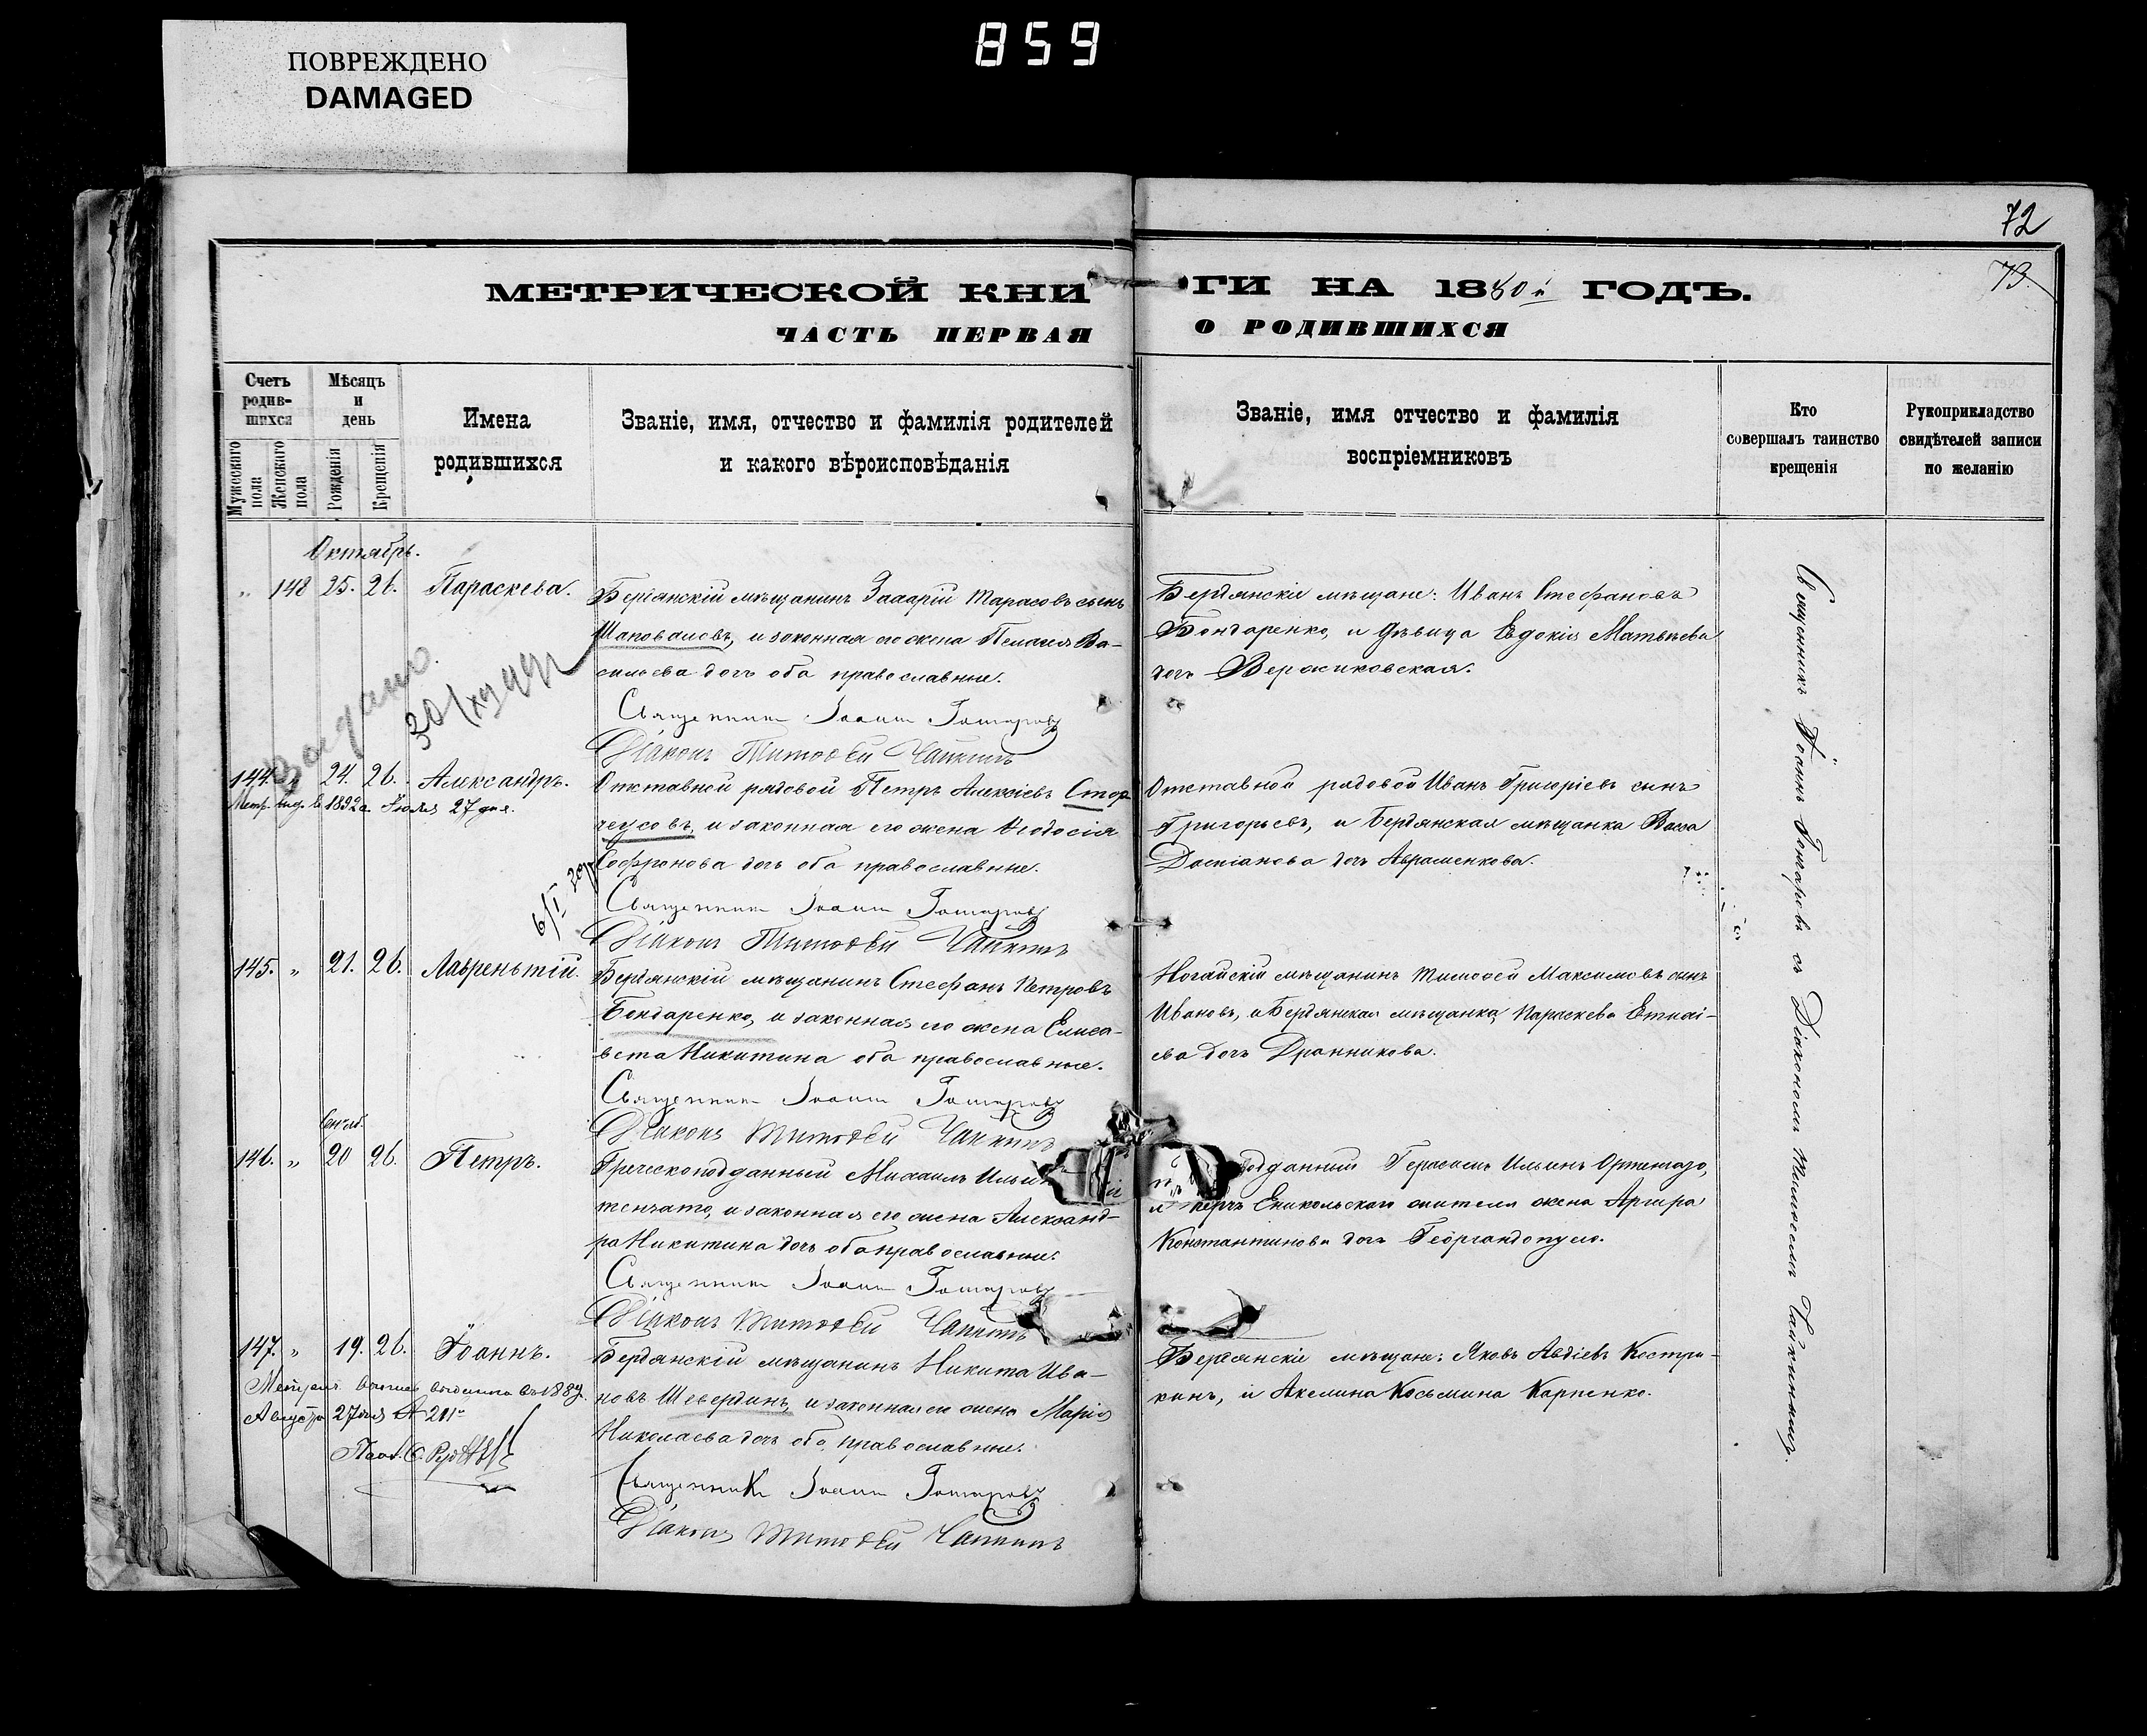 ПОВРЕЖДЕНО
DAMAGED
859
72
73.
МЕТРИЧЕСКОЙ КНИГИ НА 1880й ГОДЪ.
ЧАСТЬ ПЕРВАЯ О РОДИВШИХСЯ
Счетъ родив-шихся
Мужескаго пола
Женскаго пола
Мѣсяцъ и день
Рожденія
Крещенія
Имена родившихся
Званіе, имя, отчество и фамилія родителей
и какого вѣроисповѣданія
Званіе, имя отчество и фамилія
воспріемниковъ
Кто
совершалъ таинство
крещенія
Рукоприкладство
свидѣтелей записи
по желанію
Октябрь.
„ 148 25. 26. Параскева.
Бердянскій мѣщанинъ Захарій Тарасовъ сынъ
Шаповаловъ, и законная его жена Пелагея Ва-
сильева дочь оба православные.
Священникъ Іоаннъ Гончаровъ
Діаконъ Тимофей Чайкинъ
Бердянскіе мѣщане: Иванъ Стефановъ
Бондаренко, и дѣвица Евдокія Матвѣева
дочь Вержиковская.
Выдано.
144. „ 24. 26. Александръ.
Метр. выд. въ 1892 г. Іюля 27 дня.
Отставной рядовой Петръ Алексіевъ Стор-
чеусовъ, и законная его жена Ѳеодосія
Софронова дочь оба православные.
Священникъ Іоаннъ Гончаровъ
Діаконъ Тимофей Чайкинъ
Отставной рядовой Иванъ Григоріевъ сынъ
Григорьевъ, и Бердянская мѣщанка Васса
Даміанова дочь Авраменкова.
6/I
145. „ 21. 26. Лаврентій.
Бердянскій мѣщанинъ Стефанъ Петровъ
Бондаренко, и законная его жена Елиса-
вета Никитина оба православные.
Священникъ Іоаннъ Гончаровъ
Діаконъ Тимофей Чайкинъ
Ногайскій мѣщанинъ Тимофей Максимовъ сынъ
Ивановъ, и Бердянская мѣщанка, Параскева
ева дочь Дранникова.
Сентяб.
146. „ 20 26. Петръ.
Греческоподданный Михаилъ Ильинъ
тенчато, и законная его жена Александ-
ра Никитина дочь оба православные.
Священникъ Іоаннъ Гончаровъ
Діаконъ Тимофей Чайкинъ
подданный Герасимъ Ильинъ
и Керчь Еникольскаго жителя жена Аргира
Константинова дочь Георгандопуло.
147. „ 19. 26. Іоаннъ.
Метрич. выпись выдана въ 1889
Августа 27 дня № 211
Бердянскій мѣщанинъ Никита Ива-
новъ Шевердинъ, и законная его жена Марія
Николаева дочь оба православные.
Священникъ Іоаннъ Гончаровъ
Діаконъ Тимофей Чайкинъ
Бердянскіе мѣщане: Яковъ Авдіевъ Костри-
кинъ, и Акелина Косьмина Карпенко.
Священникъ Іоаннъ Гончаровъ съ Діакономъ Тимофеемъ Чайкинымъ.